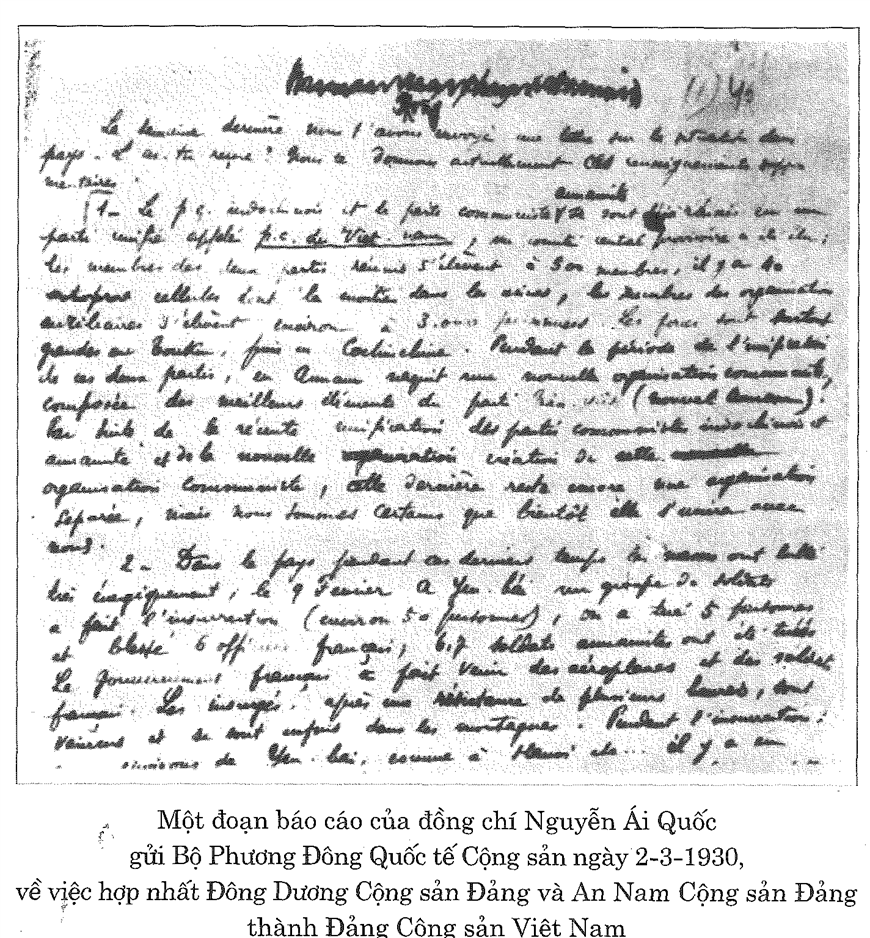 (1)
La semaine dernière nous t'avons envoyé une lettre sur la situation dans
pays. L'as-tu reçue? Nous te donnons actuellement renseignements
mentaires.
annamite
1- Le p.c. indochinois et le parti communiste sont en un
parti unifié appelé p.c. du Viet-nam, un comité central provoire a été élu;
les membres des deux partis réunis s'élèvent à 500 membres, il y a 40
cellules dont la dans les, les membres des organisations
auxiliaires s'élèvent environ à 3.000 personnes. Les forces sont
grandes au Tonkin, puis en Cochinchine. Pendant la période de l'unification
de ces deux partis, en Annam naquit une nouvelle organisation communiste,
composée des meilleurs éléments du parti (nouvel Annam).
Par suite de la récente unification des partis communiste indochinois et
annamite et de la nouvelle création de cette
organisation communiste, cette dernière reste encore une organisation
séparée, mais nous sommes certains que bientôt elle s'unira avec
nous.
2- Dans le pays pendant ces derniers temps les ont lutté
très énergiquement, le 9 Février à Yen-bái un groupe de soldats
a fait l'insurrection (environ 50 personnes), on a tué 5 personnes
et blessé 6 français, 6,7 soldats annamites ont été tués
Le Gouvernement français a fait venir des aéroplanes et des soldats
français. Les insurgés, après une résistance de plusieurs heures, sont
vaincus et se sont enfuis dans les montagnes. Pendant l'insurrection:
environs de Yen-bai, comme à Hanoi etc... il y a eu
Một đoạn báo cáo của đồng chí Nguyễn Ái Quốc
gửi Bộ Phương Đông Quốc tế Cộng sản ngày 2-3-1930,
về việc hợp nhất Đông Dương Cộng sản Đảng và An Nam Cộng sản Đảng
thành Đảng Cộng sản Việt Nam